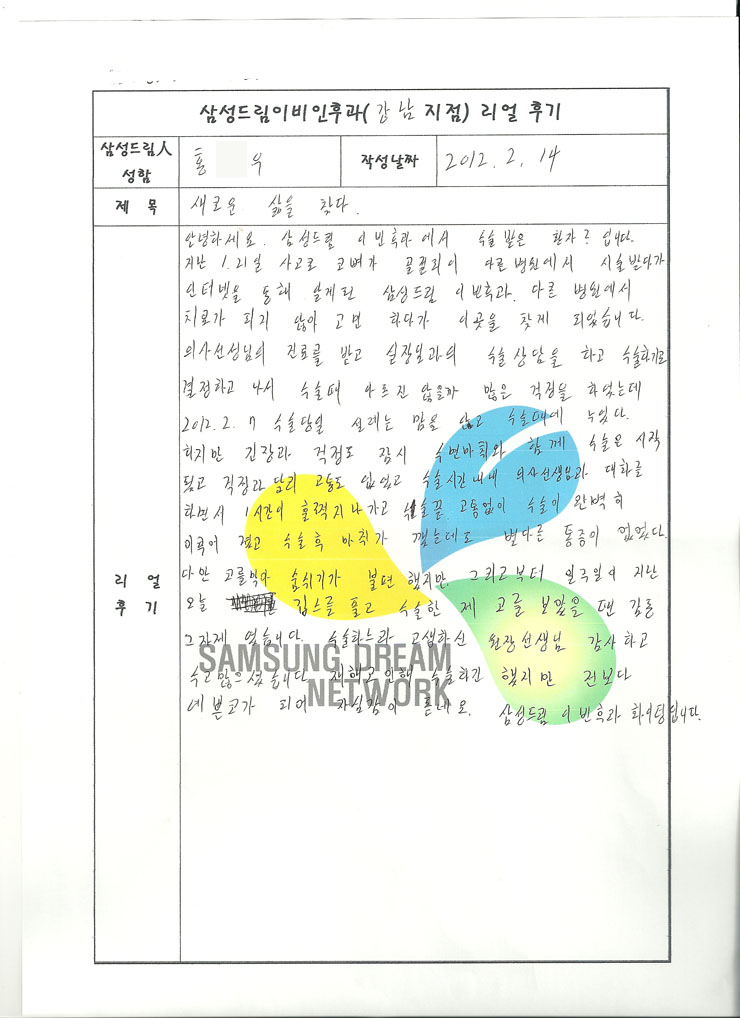 삼성드림이비인후과( 강남 지점) 리얼 후기
삼성드림人 성함
홍 우
작성날짜
2012. 2. 14
제 목
새로운 삶을 찾다.
리 얼 후 기
안녕하세요. 삼성드림 이빈후과에서 수술 받은 환자? 입니다.
지난 1.21일 사고로 코뼈가 골절되어 다른병원에서 시술받다가
인터넷을 통해 알게된 삼성드림 이빈후과. 다른 병원에서
치료가 되지 않아 고민 하다가 이곳을 찾게 되었습니다.
의사선생님의 진료를 받고 실장님과의 수술상담을 하고 수술하기로
결정하고 나서 수술때 아프진 않을까 많은 걱정을 하였는데
2012. 2. 7 수술당일 설레는 맘을 안고 수술대에 누웠다.
하지만 긴장과 걱정도 잠시 수면마취와 함께 수술은 시작
됬고 걱정과 달리 고통도 없었고 수술시간내내 의사선생님과 대화를
하면서 1시간이 훌쩍지나가고 수술끝 고통없이 수술이 완벽히
수술후 마취가 깼는데도 별다른 통증이 없었다.
다만 코를막아 숨쉬기가 불편했지만. 그리고부터 일주일이 지난
오늘 깁스를 풀고 수술한 제 코를 보았을 땐 감동
그자체 였습니다. 수술하느라 고생하신 원장선생님 감사하고
수고많으셨습니다. 수술하긴 했지만 전보다
예쁜코가 되어 자신감이 돋네요. 삼성드림 이빈후과 화이팅입니다.
SAMSUNG DREAM
NETWORK